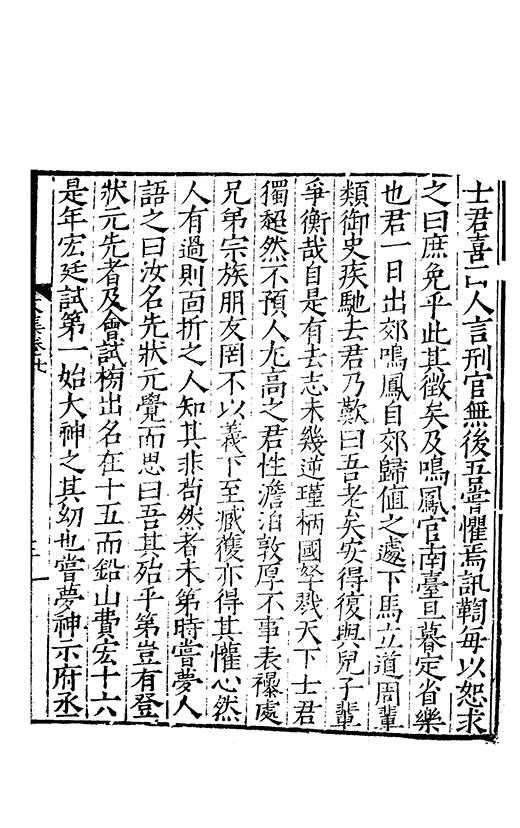 士君喜曰人言刑官無後吾嘗懼焉訊鞫每以恕求
之曰庶免乎此其徵矣及鳴鳳官南臺旦暮定省樂
也君一日出郊鳴鳳自郊歸値之遽下馬立道周輩
類御史疾馳去君乃歎曰吾老矣安得復與兒子輩
爭衡哉自是有去志未幾逆瑾柄國孥戮天下士君
獨超然不預人尤高之君性澹泊敦厚不事表襮處
兄弟宗族朋友罔不以義下至臧獲亦得其懽心然
人有過則面折之人知其非苟然者未第時嘗夢人
語之曰汝名先狀元覺而思曰吾其殆乎第豈有登
狀元先者及會試榜出名在十五而鉛山費宏十六
是年宏廷試第一始大神之其幼也嘗夢神示府丞
文集卷之七